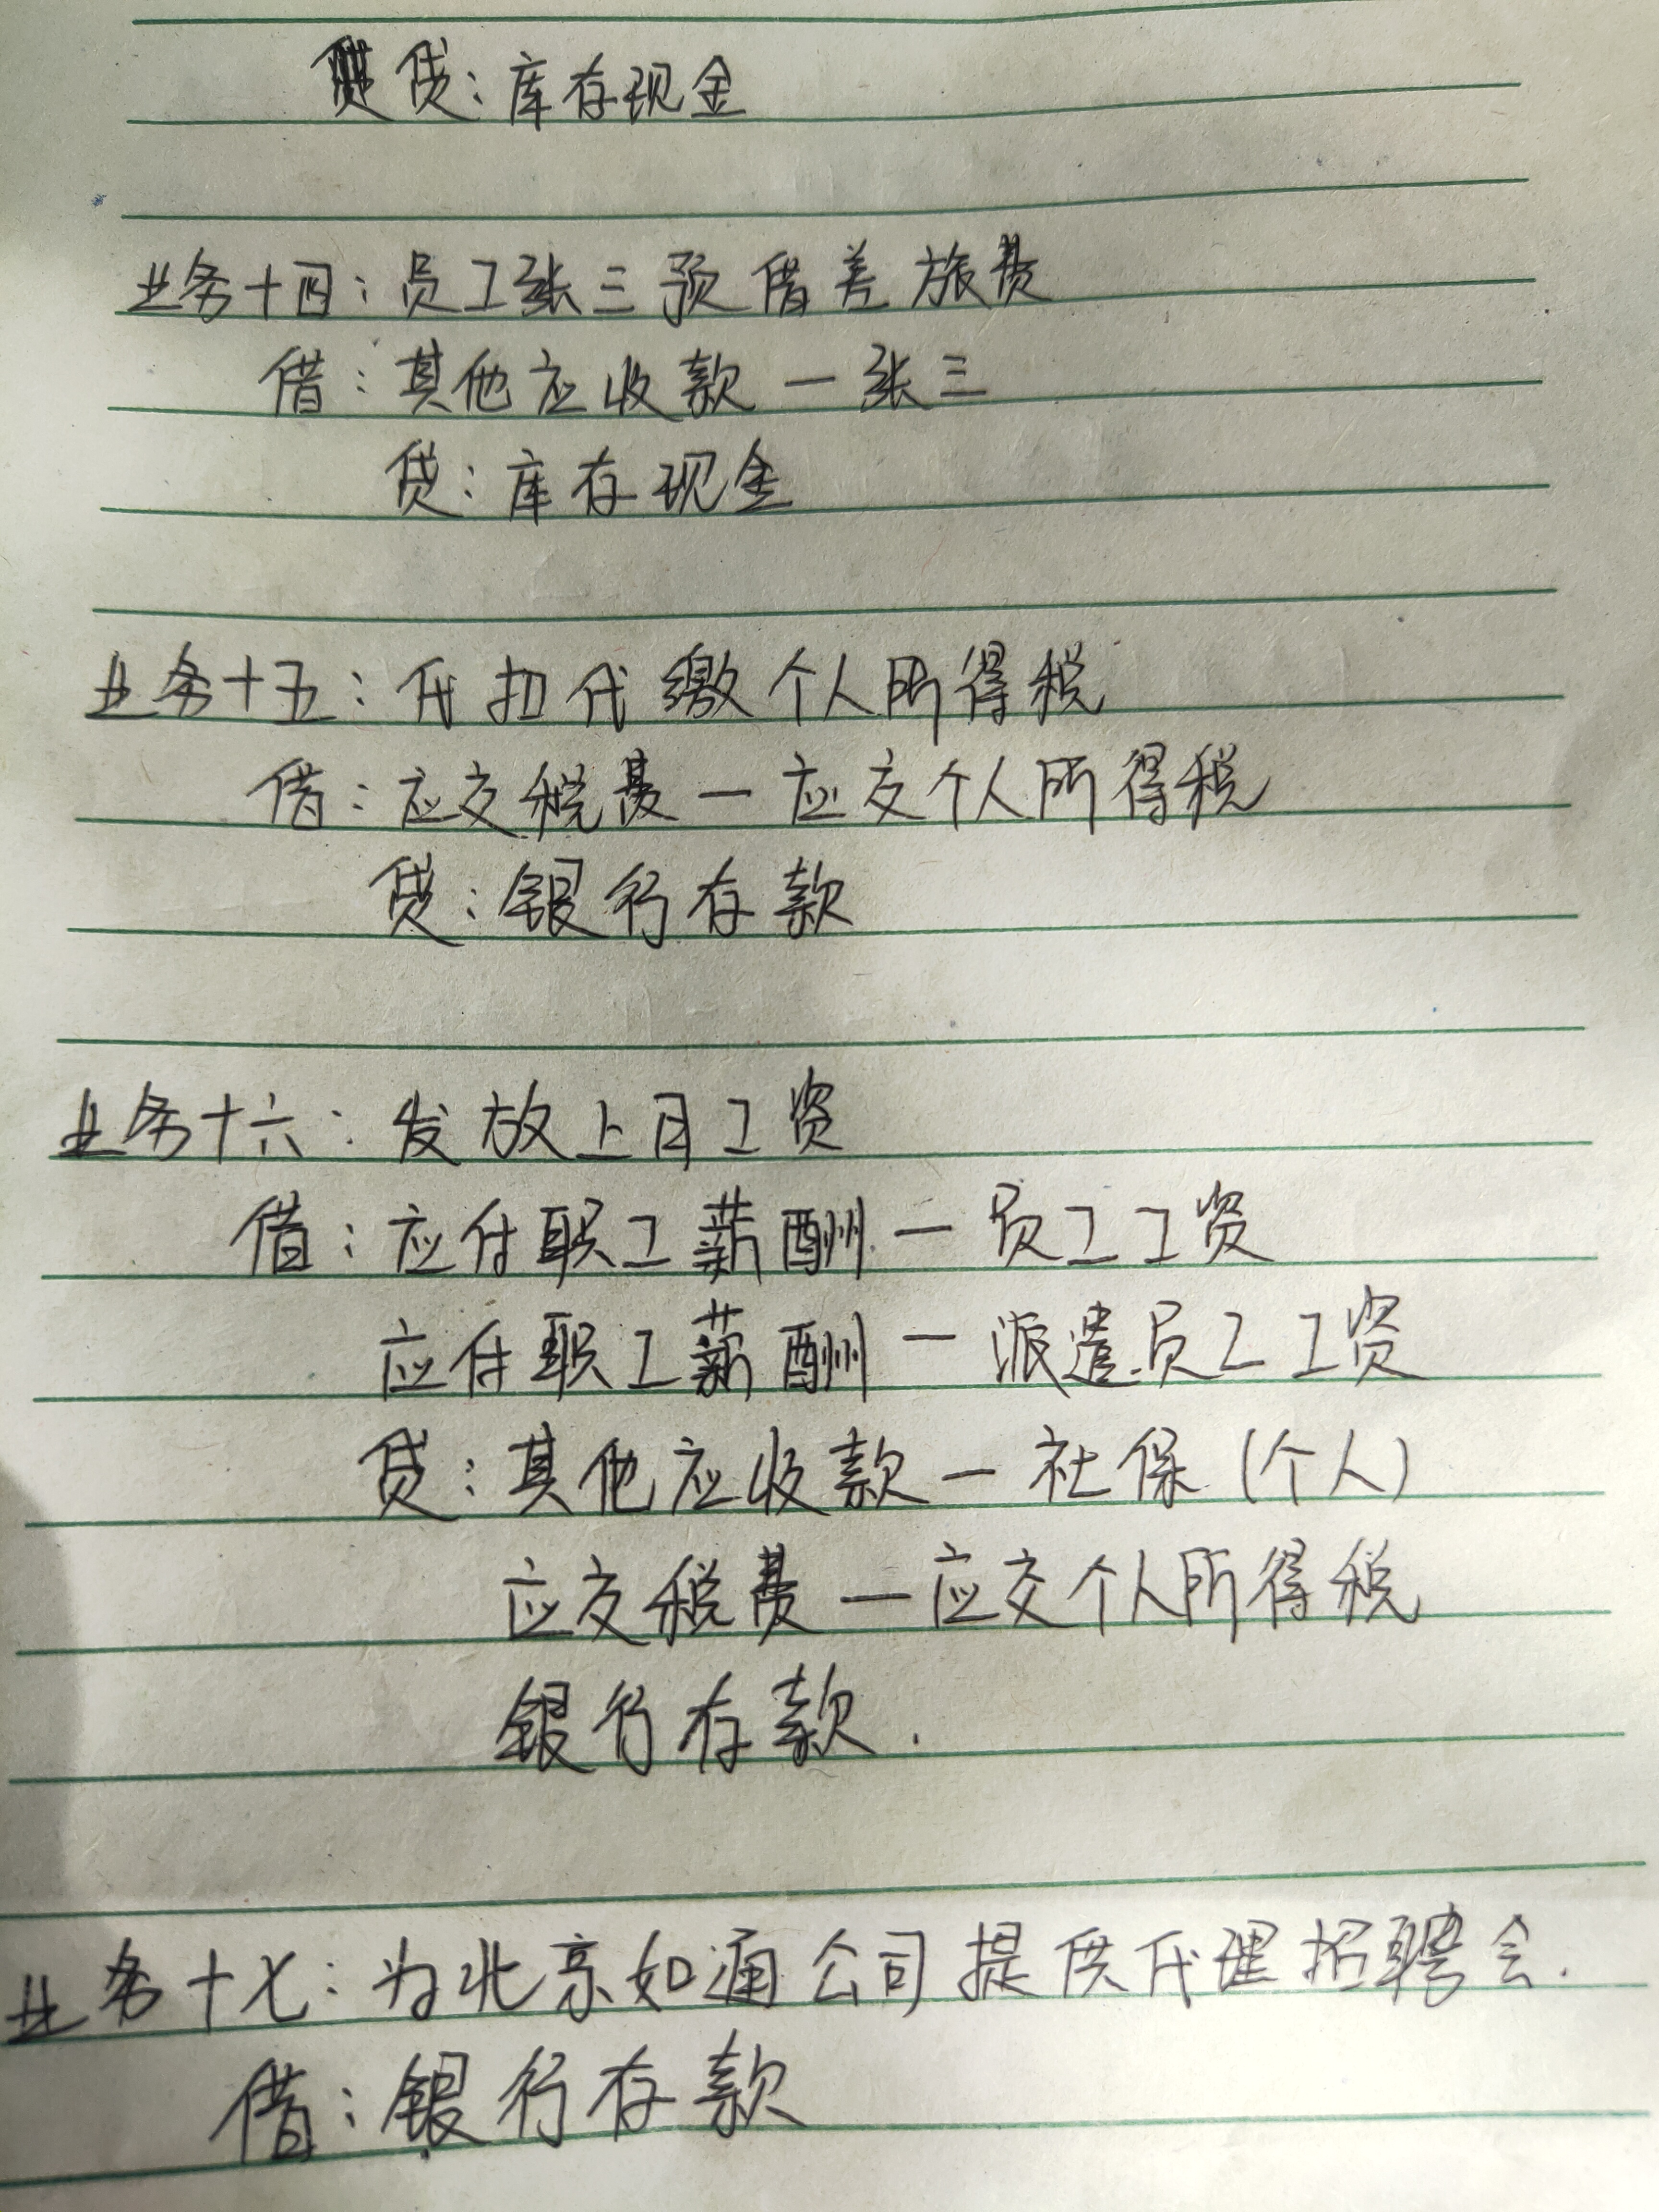 贷:库存现金
业务十四:员工张三预借差旅费
借:其他应收款一张三
贷:库存现金
业务十五:代扣代缴个人所得税
借:应交税费一应交个人所得税
贷:银行存款
业务十六:发放上月工资
借:应付职工薪酬一员工工资
应付职工薪酬一派遣员工工资
贷:其他应收款一社保(个人)
应交税费一应交个人所得税
银行存款.
业务十七:为北京如通公司提供代理招聘会.
借:银行存款